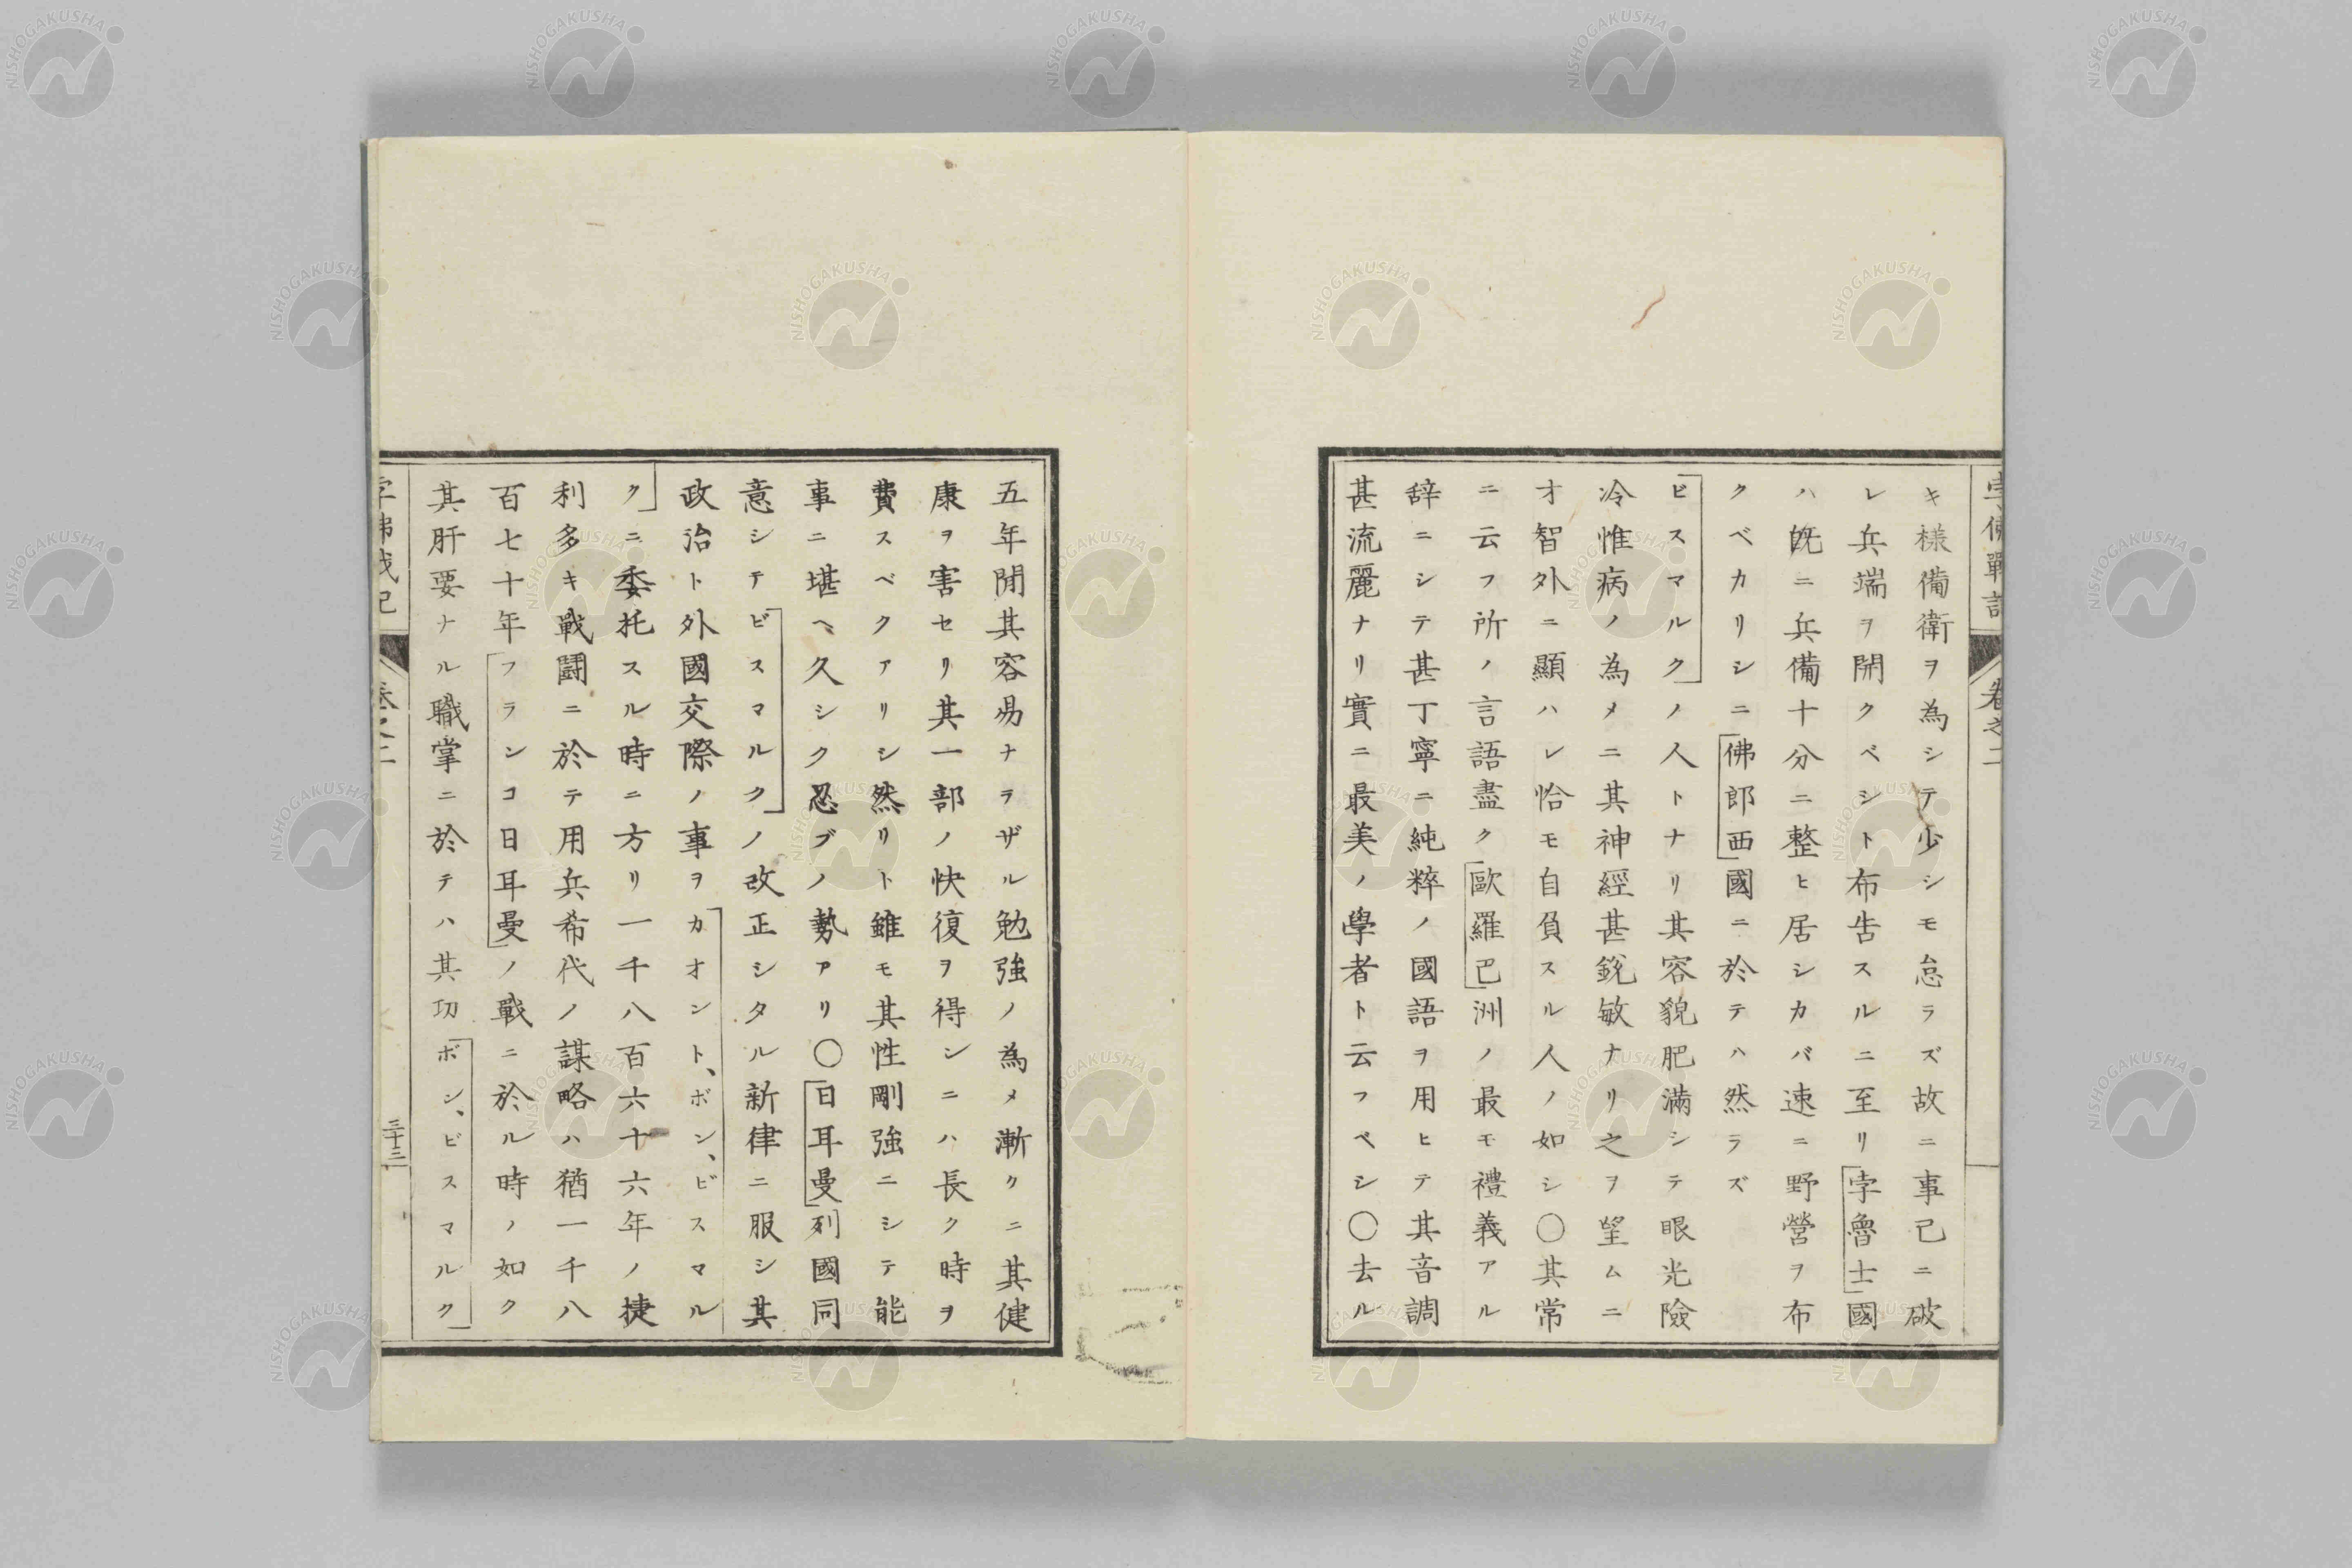 孛佛戰記 卷之二
キ様備衛ヲ為シテ少シモ怠ラズ故ニ事已ニ破
レ兵端ヲ開クベシト布告スルニ至リ孛魯士國
ハ既ニ兵備十分ニ整ヒ居シカバ速ニ野營ヲ布
クベカリシニ佛郎西國ニ於テハ然ラズ
ビスマルクノ人トナリ其容貌肥滿シテ眼光險
冷惟病ノ為メニ其神經甚鋭敏ナリ之ヲ望ムニ
才智外ニ顯ハレ恰モ自負スル人ノ如シ〇其常
ニ云フ所ノ言語盡ク歐羅巴洲ノ最モ禮義アル
辞ニシテ甚丁寧ニ純粹ノ國語ヲ用ヒテ其音調
甚流麗ナリ實ニ最美ノ學者ト云フベシ〇去ル
五年間其容易ナラザル勉強ノ為メ漸クニ其健
康ヲ害セリ其一部ノ快復ヲ得ンニハ長ク時ヲ
費スベクアリシ然リト雖モ其性剛強ニシテ能
事ニ堪ヘ久シク忍ブノ勢アリ〇日耳曼列國同
意シテビスマルクノ改正シタル新律ニ服シ其
政治ト外國交際ノ事ヲカオント、ボン、ビスマル
クニ委托スル時ニ方リ一千八百六十六年ノ捷
利多キ戰鬪ニ於テ用兵希代ノ謀略ハ猶一千八
百七十年フランコ日耳曼ノ戰ニ於ル時ノ如ク
其肝要ナル職掌ニ於テハ其功ボン、ビスマルク
孛佛戰記 卷之二 三十三
NISHOGAKUSHA